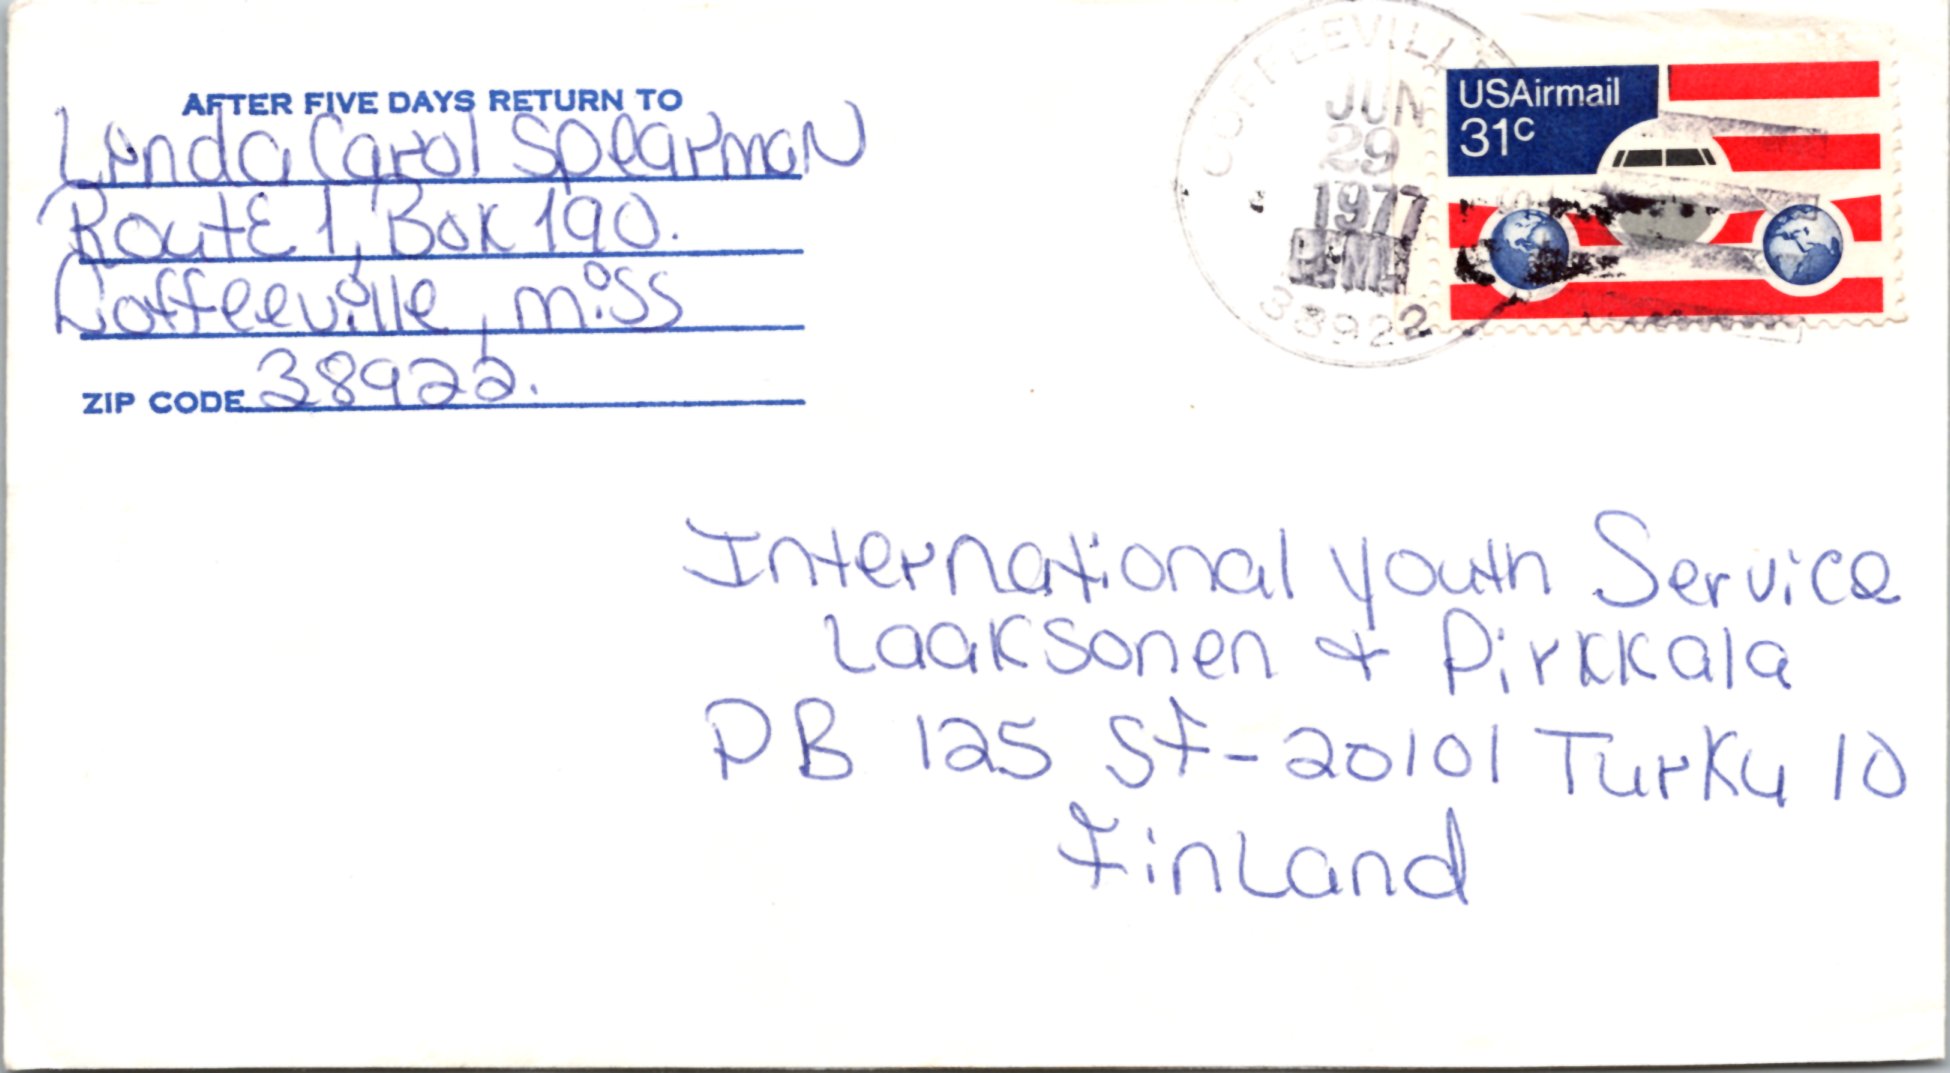 AFTER FIVE DAYS RETURN TO
Linda Carol Spearman
Route 1, Box 190.
Coffeeville, Miss
ZIP CODE 38922.
COFFEEVILLE
JUN
29
1977
38922
USAirmail
31c
International Youth Service
Laaksonen & Pirkkala
PB 125 SF-20101 Turku 10
Finland